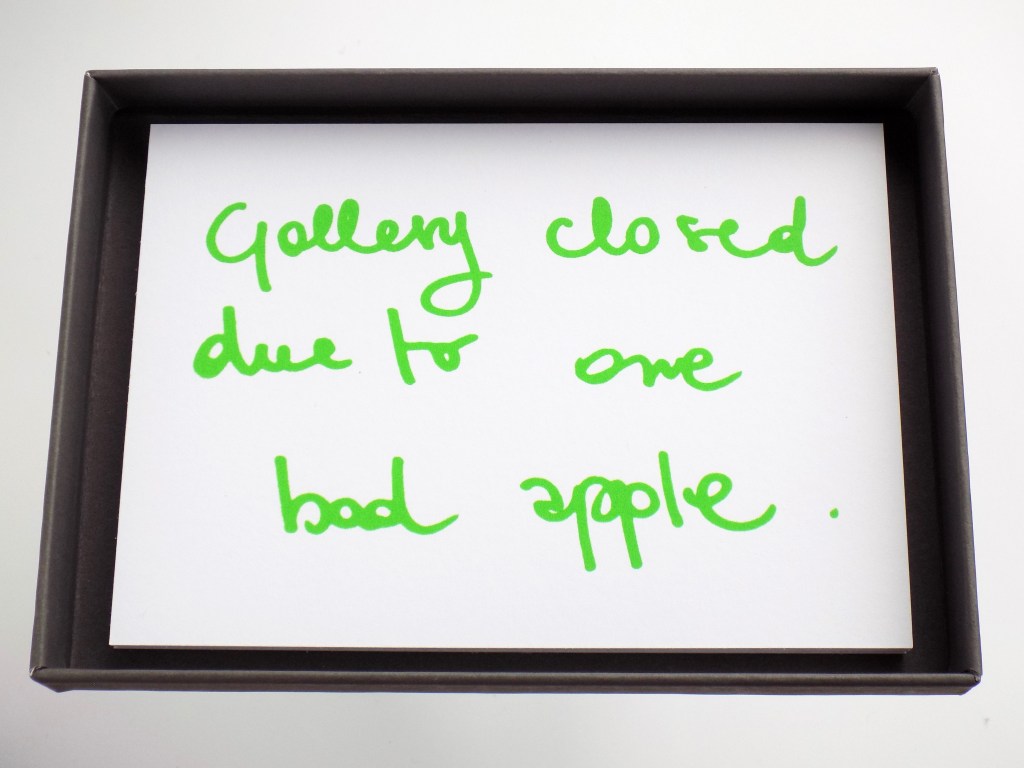 Gallery closed
due to one
bad apple.